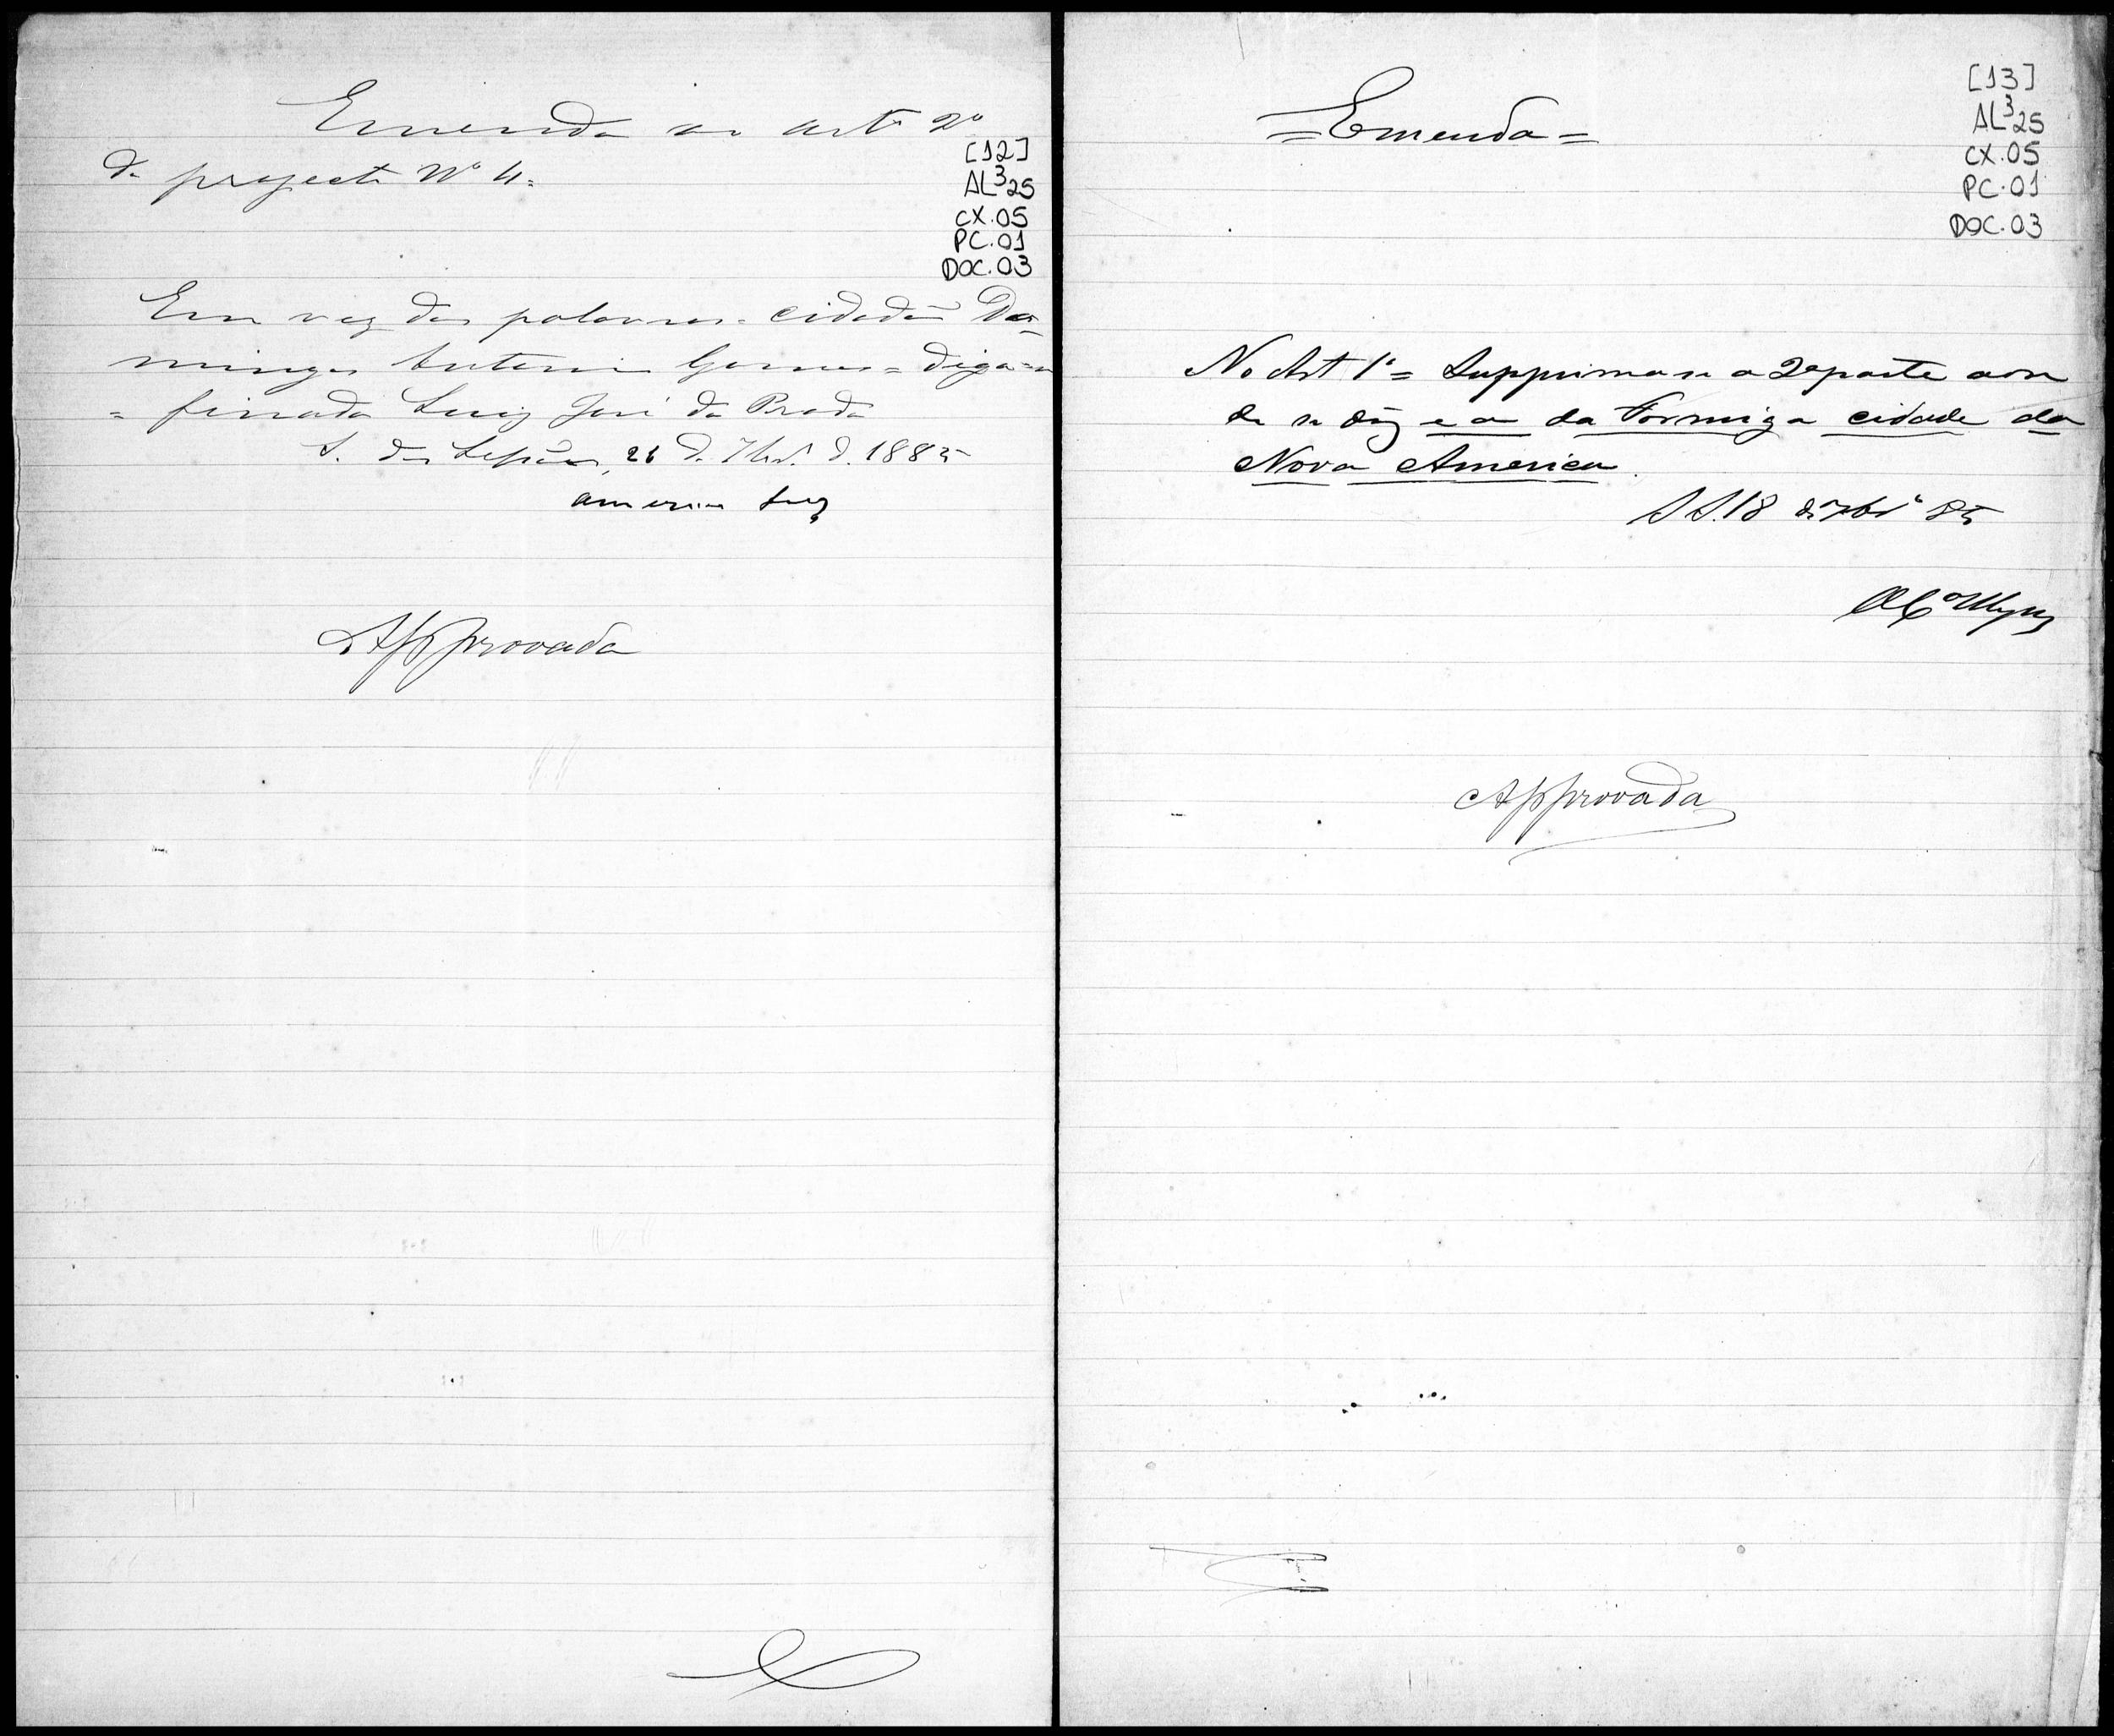 Emenda ao art. 2º
do projecto Nº 4=
[12]
AL³25
CX.05
PC.01
DOC.03
Em vez das palavras = cidadão Do-
mingos Antonio Gomes = diga-se
= finado Luiz José do Prado
S. das Sessões, 21 de 7br.º de 1885
Americo Luz
Approvada
=Emenda=
[13]
AL³25
CX.05
PC.01
DOC.03
No Art 1º = Supprima se a 2ª parte aon
de se diz e a da Formiga cidade da
Nova America.
SS. 18 de 7brº 85
Approvada